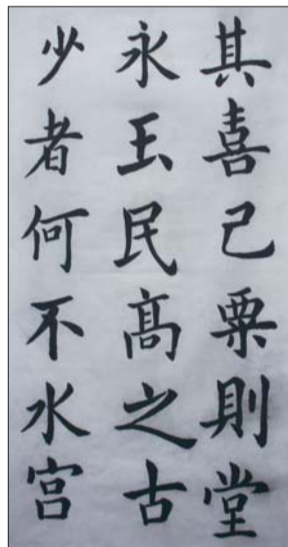 其喜己粟則堂
永玉民髙之古
少者何不水宫